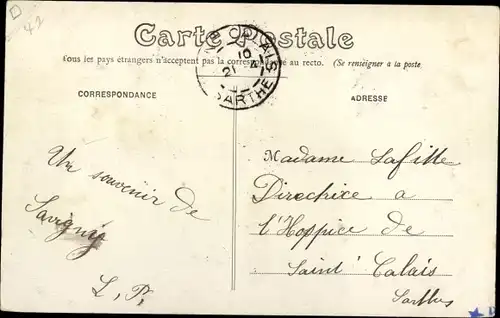 42
Carte Postale
Tous les pays étrangers n'acceptent pas la correspondance au recto. (Se renseigner à la poste
CALAIS
10
21
SARTHE
CORRESPONDANCE
ADRESSE
Un souvenir de
Savigny
L. P.
Madame Lafitte
Directrice a
l'Hospice de
Saint Calais
Sarthe